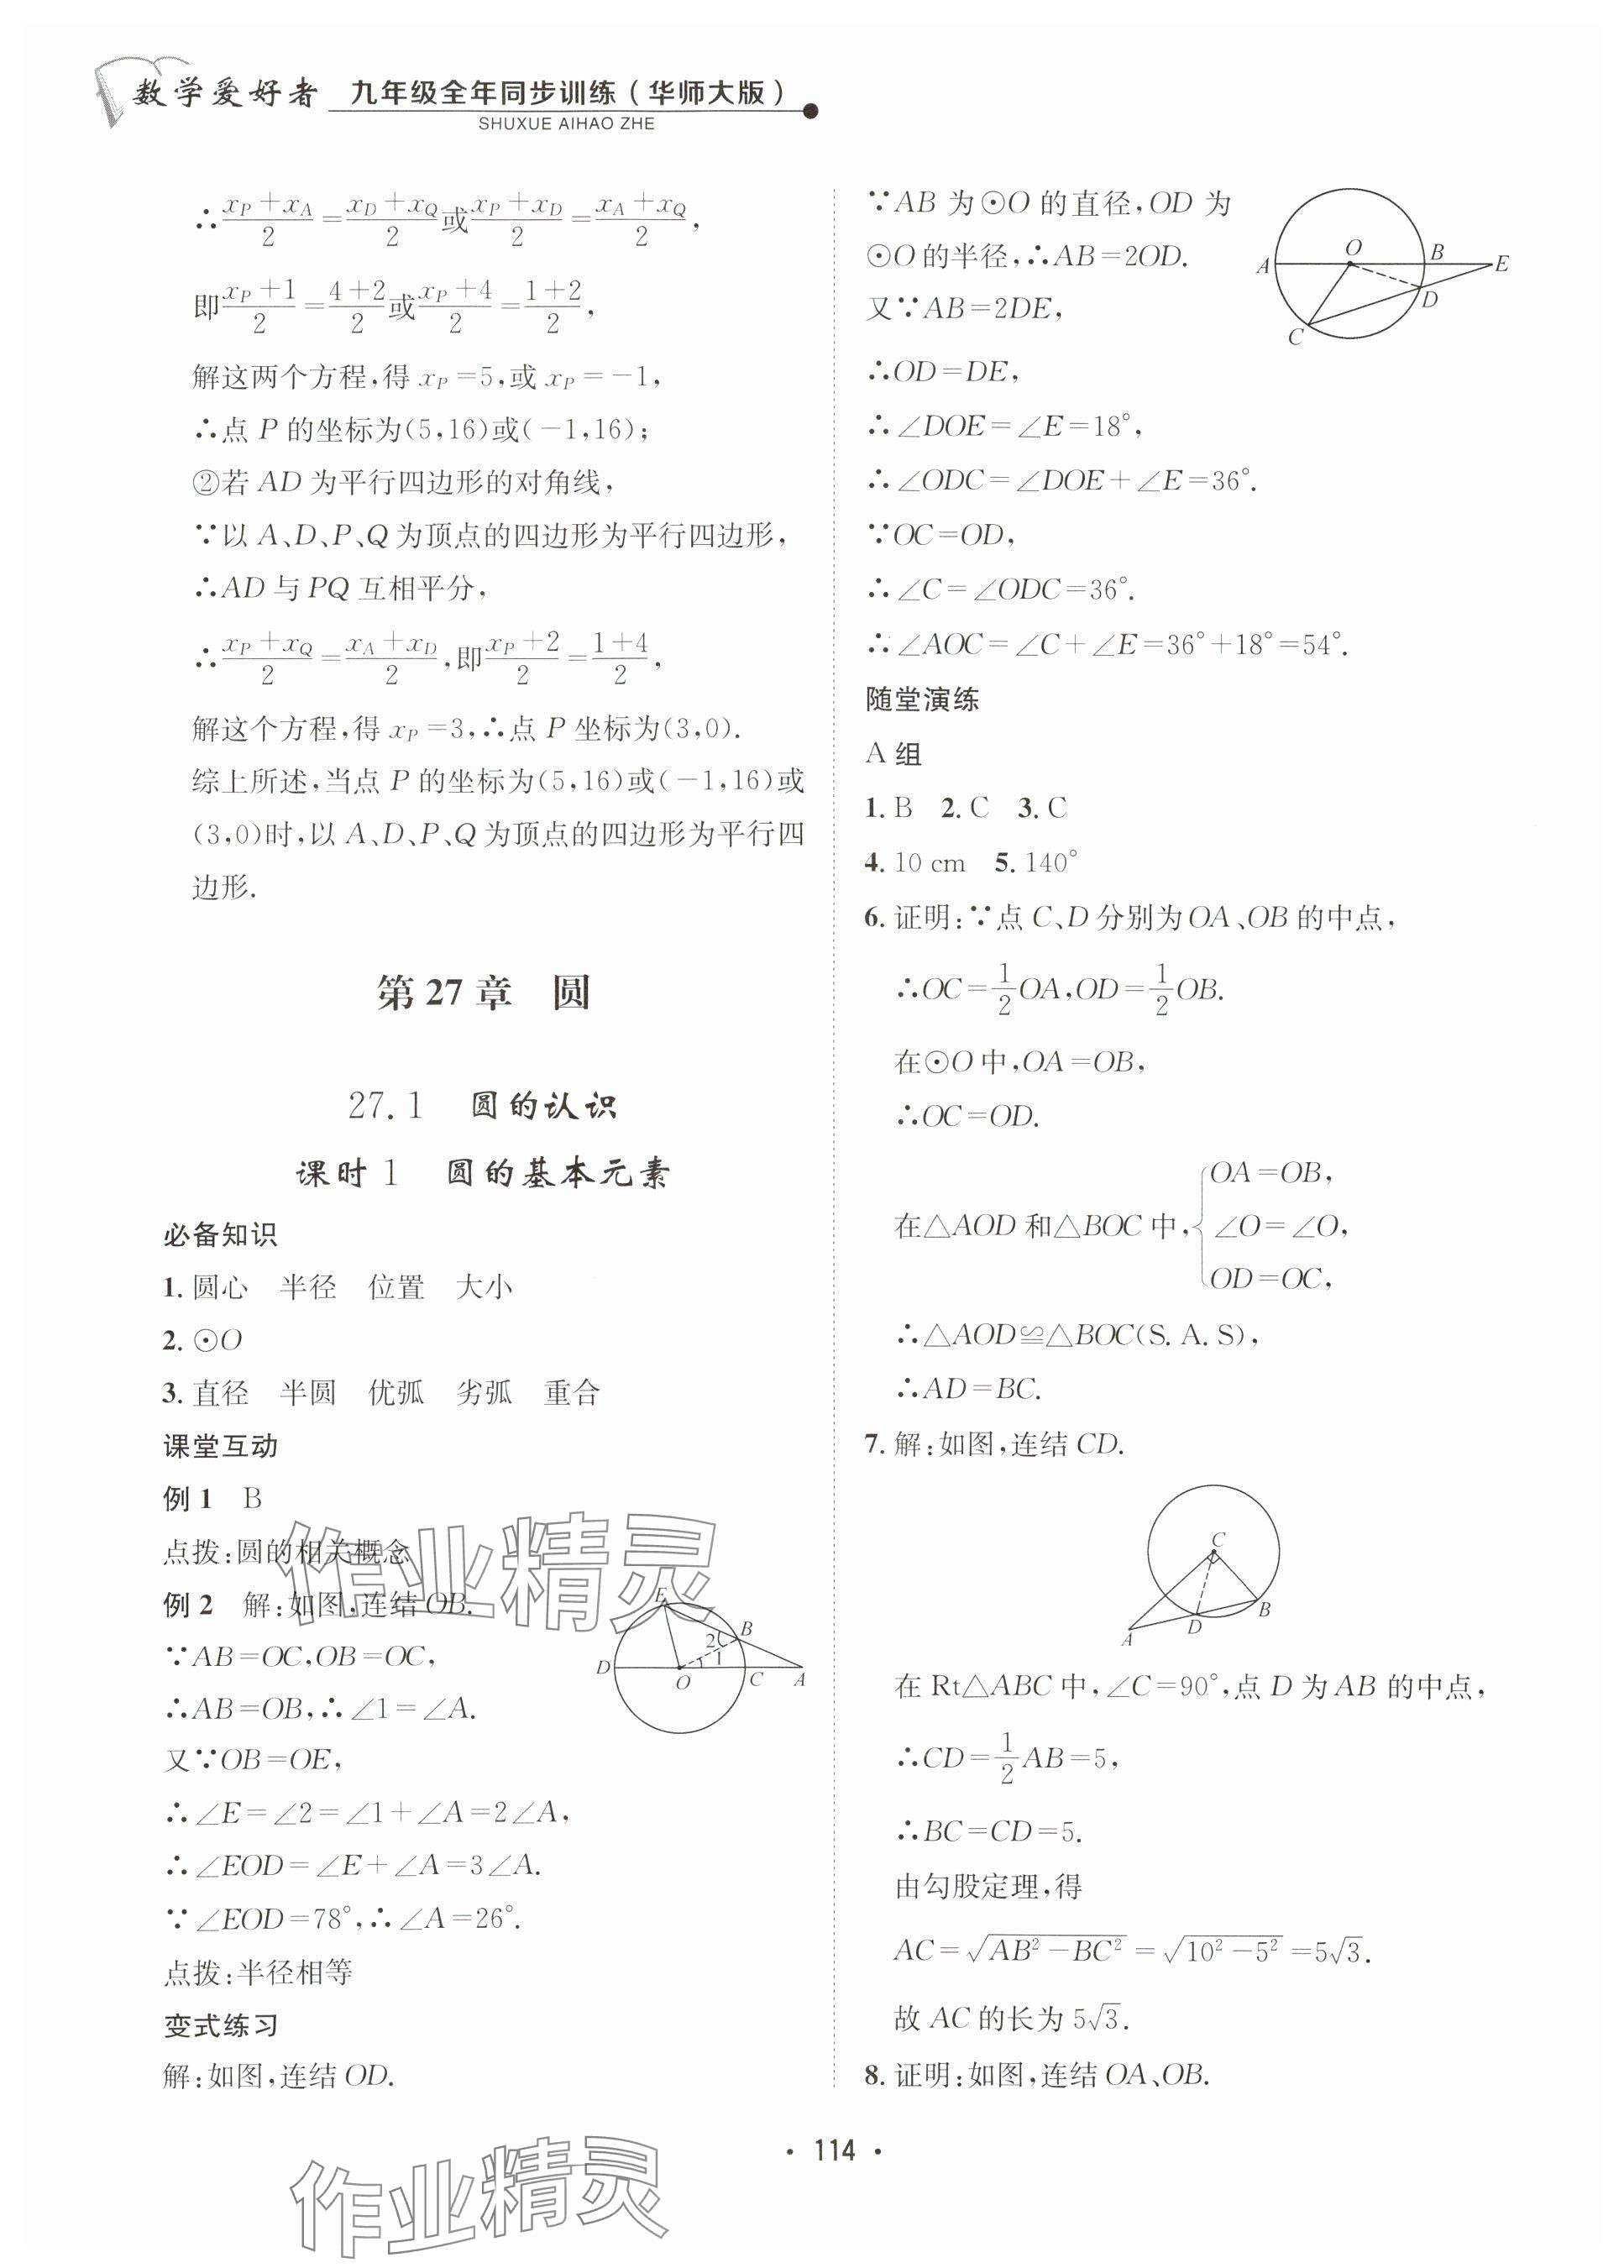 数学爱好者 九年级全年同步训练(华师大版)
SHUXUE AIHAO ZHE
∴(x_P+x_A)/2=(x_D+x_Q)/2或(x_P+x_D)/2=(x_A+x_Q)/2,
即(x_P+1)/2=(4+2)/2或(x_P+4)/2=(1+2)/2,
解这两个方程,得 x_P=5,或 x_P=-1,
∴点 P 的坐标为(5,16)或(-1,16);
②若 AD 为平行四边形的对角线,
∵以 A、D、P、Q 为顶点的四边形为平行四边形,
∴AD 与 PQ 互相平分,
∴(x_P+x_Q)/2=(x_A+x_D)/2,即(x_P+2)/2=(1+4)/2,
解这个方程,得 x_P=3,∴点 P 坐标为(3,0).
综上所述,当点 P 的坐标为(5,16)或(-1,16)或
(3,0)时,以 A、D、P、Q 为顶点的四边形为平行四
边形.
第 27 章 圆
27.1 圆的认识
课时 1 圆的基本元素
必备知识
1. 圆心 半径 位置 大小
2. ⊙O
3. 直径 半圆 优弧 劣弧 重合
课堂互动
例 1 B
点拨:圆的相关概念
例 2 解:如图,连结 OB.
∵AB=OC,OB=OC,
∴AB=OB,∴∠1=∠A.
又∵OB=OE,
∴∠E=∠2=∠1+∠A=2∠A,
∴∠EOD=∠E+∠A=3∠A.
∵∠EOD=78°,∴∠A=26°.
E
B
2
1
D
O
C
A
点拨:半径相等
变式练习
解:如图,连结 OD.
∵AB 为⊙O 的直径,OD 为
⊙O 的半径,∴AB=2OD.
又∵AB=2DE,
A
O
B
E
D
C
∴OD=DE,
∴∠DOE=∠E=18°,
∴∠ODC=∠DOE+∠E=36°.
∵OC=OD,
∴∠C=∠ODC=36°.
∴∠AOC=∠C+∠E=36°+18°=54°.
随堂演练
A 组
1. B 2. C 3. C
4. 10 cm 5. 140°
6. 证明:∵点 C、D 分别为 OA、OB 的中点,
∴OC=1/2OA,OD=1/2OB.
在⊙O 中,OA=OB,
∴OC=OD.
在△AOD 和△BOC 中,{OA=OB,
∠O=∠O,
OD=OC,
∴△AOD≌△BOC(S. A. S),
∴AD=BC.
7. 解:如图,连结 CD.
C
A
D
B
在 Rt△ABC 中,∠C=90°,点 D 为 AB 的中点,
∴CD=1/2AB=5,
∴BC=CD=5.
由勾股定理,得
AC=√(AB²-BC²)=√(10²-5²)=5√3.
故 AC 的长为 5√3.
8. 证明:如图,连结 OA、OB.
作业精灵
作业精灵
· 114 ·